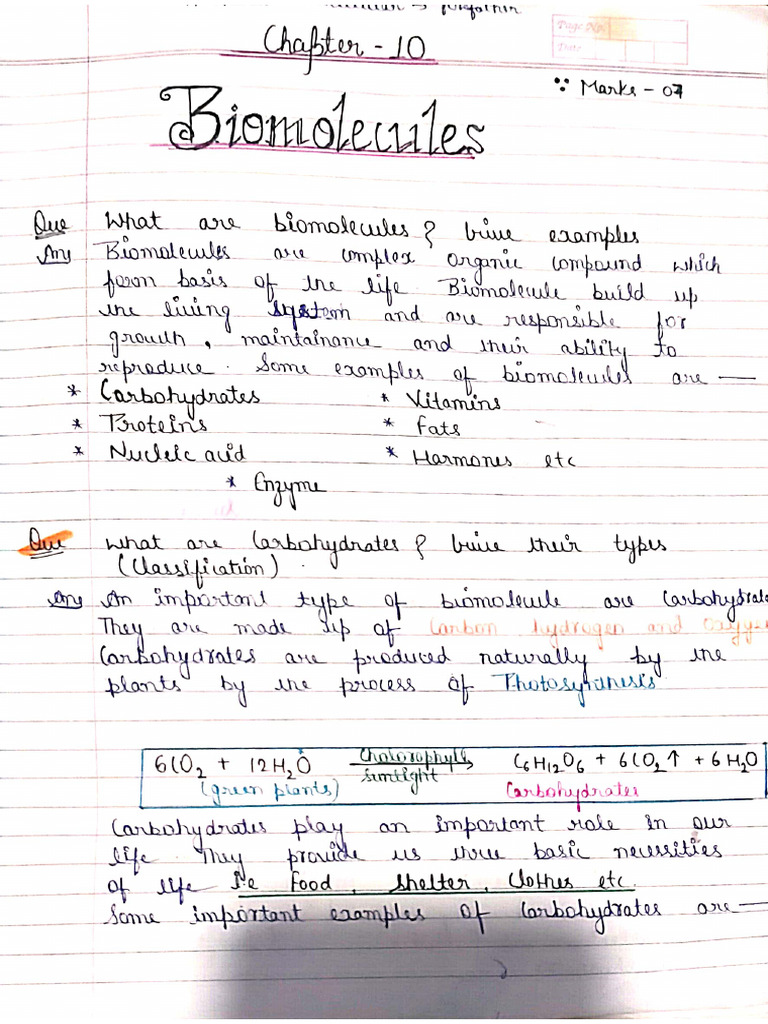 Chapter - 10
Page No.
Date
∵ Marks - 07
Biomolecules
Que What are biomolecules ? Give examples
Ans Biomolecules are complex organic compound which
form basis of the life Biomolecule build up
the living system and are responsible for
growth, maintainance and their ability to
reproduce. Some examples of biomolecules are —
* Carbohydrates * Vitamins
* Proteins * Fats
* Nucleic acid * Harmones etc
* Enzyme
Que What are Carbohydrates ? Give their types
(Classification).
Ans An important type of biomolecule are Carbohydrate
They are made up of Carbon hydrogen and Oxygen
Carbohydrates are produced naturally by the
plants by the process of Photosynthesis
6CO2 + 12H2O Cholorophyll sunlight → C6H12O6 + 6CO2↑ + 6H2O
(green plants) Carbohydrates
Carbohydrates play an important role in our
life. They provide us three basic necessities
of life i.e food, shelter, Clothes etc.
Some important examples of Carbohydrates are —